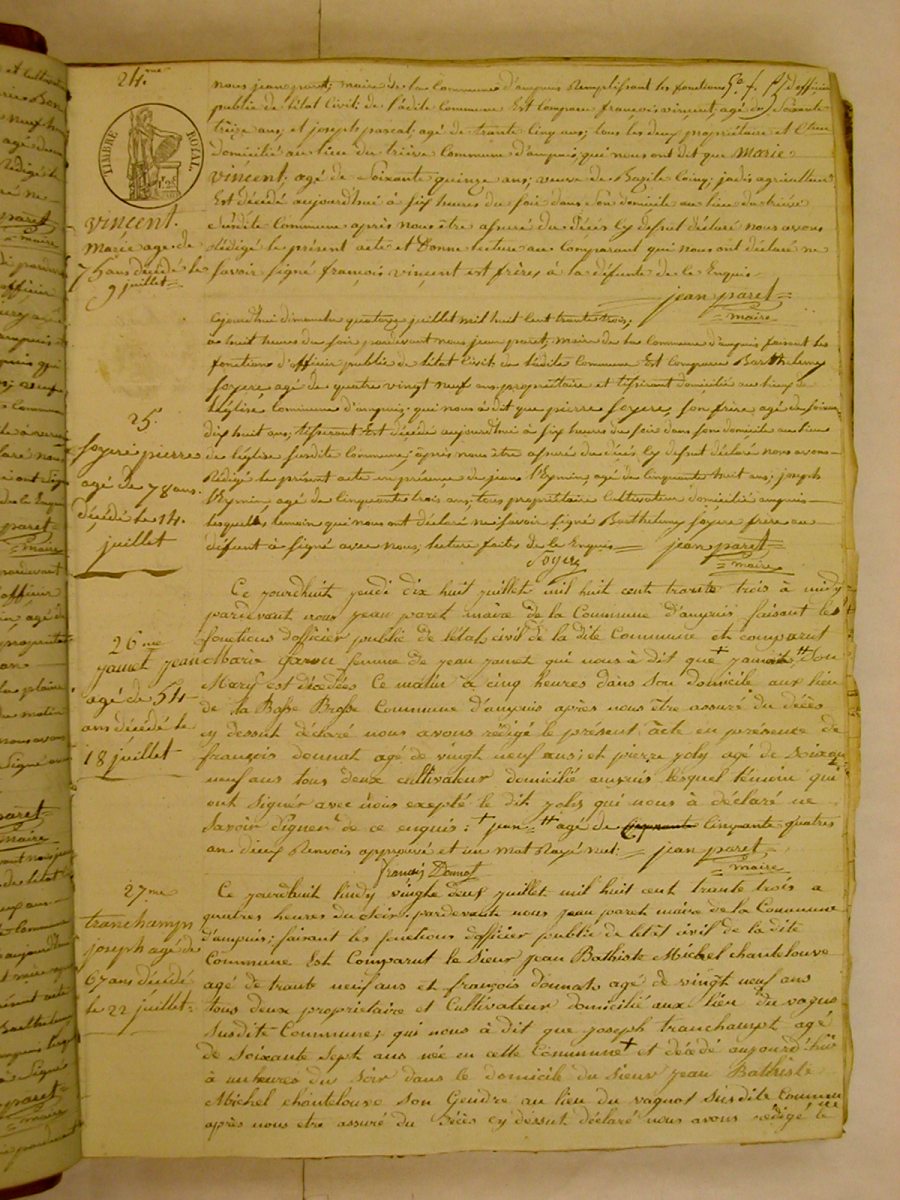 24.me
TIMBRE ROYAL.
vincent.
Marie age de
75 ans décédé le
9 juillet
nous jean paret, maire de la Commune d'ampuis Remplissant les fonctions d'officier
publie de létat Civil; de Cédite Commune Est Comparu françois vincent, agé de Soixante
treize ans, et joseph pascal, agé de trante Cinq ans; tous les deux propriétaire et
domicilié au lieu du trièze Commune d'ampuis; qui nous ont dit que Marie
vincent, agé de Soixante quinze ans; veuve de Bazile Coing; jadis agriculteur
Est décédé aujourd'hui à six heures du soir dans Son domicile au lieu du trièze
Susdite Commune après nous être assuré du décès Cy dessut déclaré nous avons
Rédigé le présent acte et Donné lecture au Comparant qui nous ont déclaré ne
Savoir signé françois vincent est frère, à la défunte de le Enquis
jean paret
maire
25.
foyere pierre
agé de 78 ans.
décédé le 14.
juillet
Cejourdhui dimanche quatorze juillet mil huit Cent trante trois;
à huit heures du soir pardevant nous jean paret; maire de la Commune d'ampuis faisant les
fonctions d'officier publie de létat Civil de ladite Commune Est Comparu Barthelemy
foyere agé de quatre vingt neuf ans. propriétaire et tisserant domicilié au lieu de
léglise Commune d'ampuis; qui nous à dit que pierre foyere, son frère agé de soixante
dix huit ans; tisserant Est décédé aujourdhui à six heures du soir dans son domicile au lieu
de léglise susdite Commune; après nous être assuré du décès Cy dessut déclaré nous avons
Rédigé le présent acte en présence de jean Eymin, agé de Cinquante huit ans; joseph
Eymin, agé de Cinquante trois ans, tous propriétaire Cultivateur domicilié ampuis
lesquelles, temoin qui nous ont déclaré ne savoir signé Barthelemy foyere frère au
défunt à signé avec nous; lecture faite de le Enquis jean paret
foyere
maire
26me
jamet jean
agé de 54
ans décédé le
18 juillet
Ce jourdhuit jeudi dix huit juillet mil huit cent trante trois à midy
pardevant nous jean paret maire de la Commune d'ampuis faisant les
fonctions dofficier publié de létat, civil de la dite Commune est comparut
Marie garon femme de jean jamet qui nous à dit que + jamet, ++ Son
Marif est décédées Ce matin à cinq heures dans Son domicile aux lieu
de la Bosse Brosse Commune d'ampuis après nous être assuré du décès
cy dessut déclaré nous avons rédigé le présent acte en présence de
françois donnat agé de vingt neuf ans; et pierre joly agé de Soixante
neuf ans tous deux cultivateur domicilié ampuis lesquel témoin qui
ont Signer avec nous exepté le dit joly qui nous à déclaré ne
Savoir Signer de ce enquis: + jean ++ agé de Cinquante quatres
an dieux Renvois approuvé et un mot Rayé nul: jean paret
françois Donnat
maire
27me
tranchamp
joseph agé de
67 ans décédé
le 22 juillet
Ce jourdhuit lundy vinght deux juillet mil huit cent trante trois a
quatres heures du soir, pardevant nous jean paret maire de la Commune
d'ampuis; faisant les fonctions dofficier publie de létét civil de la dite
Commune Est Comparut le Sieur jean Bathiste Michel chantelouve
agé de trante neuf ans et françois donnat agé de vingt neuf ans
tous deux proprietaire et Cultivateur domicilié aux lieu du vagnot
Susdite Commune; qui nous à dit que joseph tranchampt agé
de Soixante Sept ans née en cette Commune + et décédé aujourd'hui
à un heures du Soir dans le domicile du Sieur jean Bathiste
Michel chantelouve Son Gendre au lieu du vagnot Susdite Commune
après nous etre assuré du décès cy dessut déclaré nous avons rédigé le